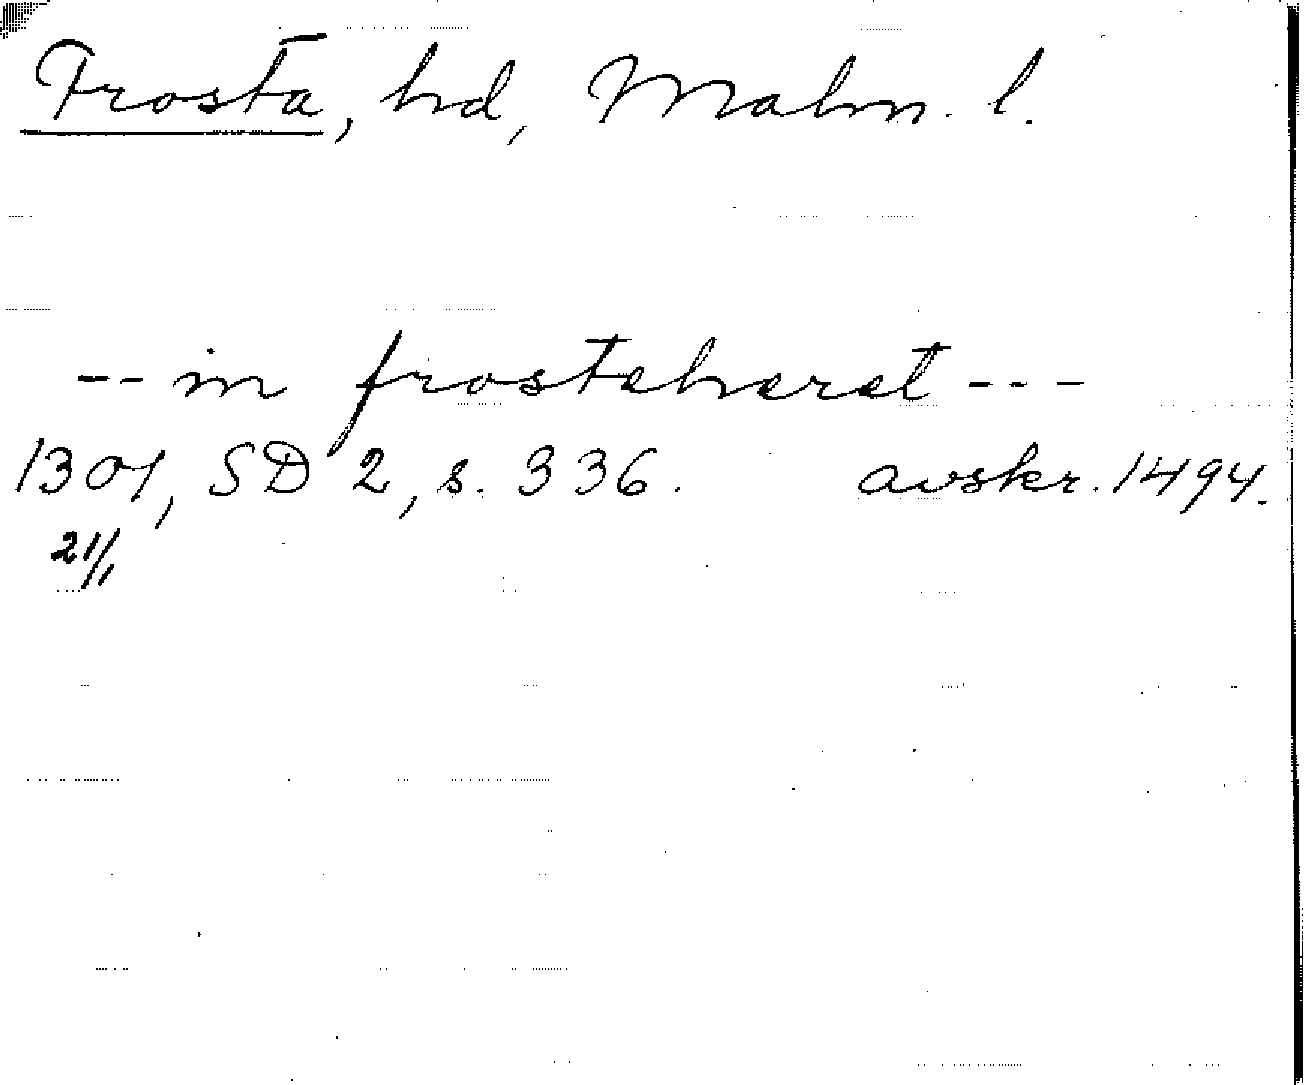 Frosta, hd, Malm. l.
-- in frosteheret ---
1307, SD 2, s. 336. avskr. 1494.
21/1